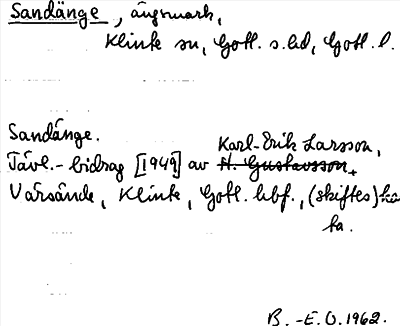 Sandänge, ängsmark,
Klinte sn, Gotl. s.hd, Gotl. l.
Sandänge.
Karl-Erik Larsson,
Tävl.-bidrag [1949] av H. Gustavsson.
Varsände, Klinte, Gotl. hbf., (skiftes)ka
ta.
B.-E.O. 1962.